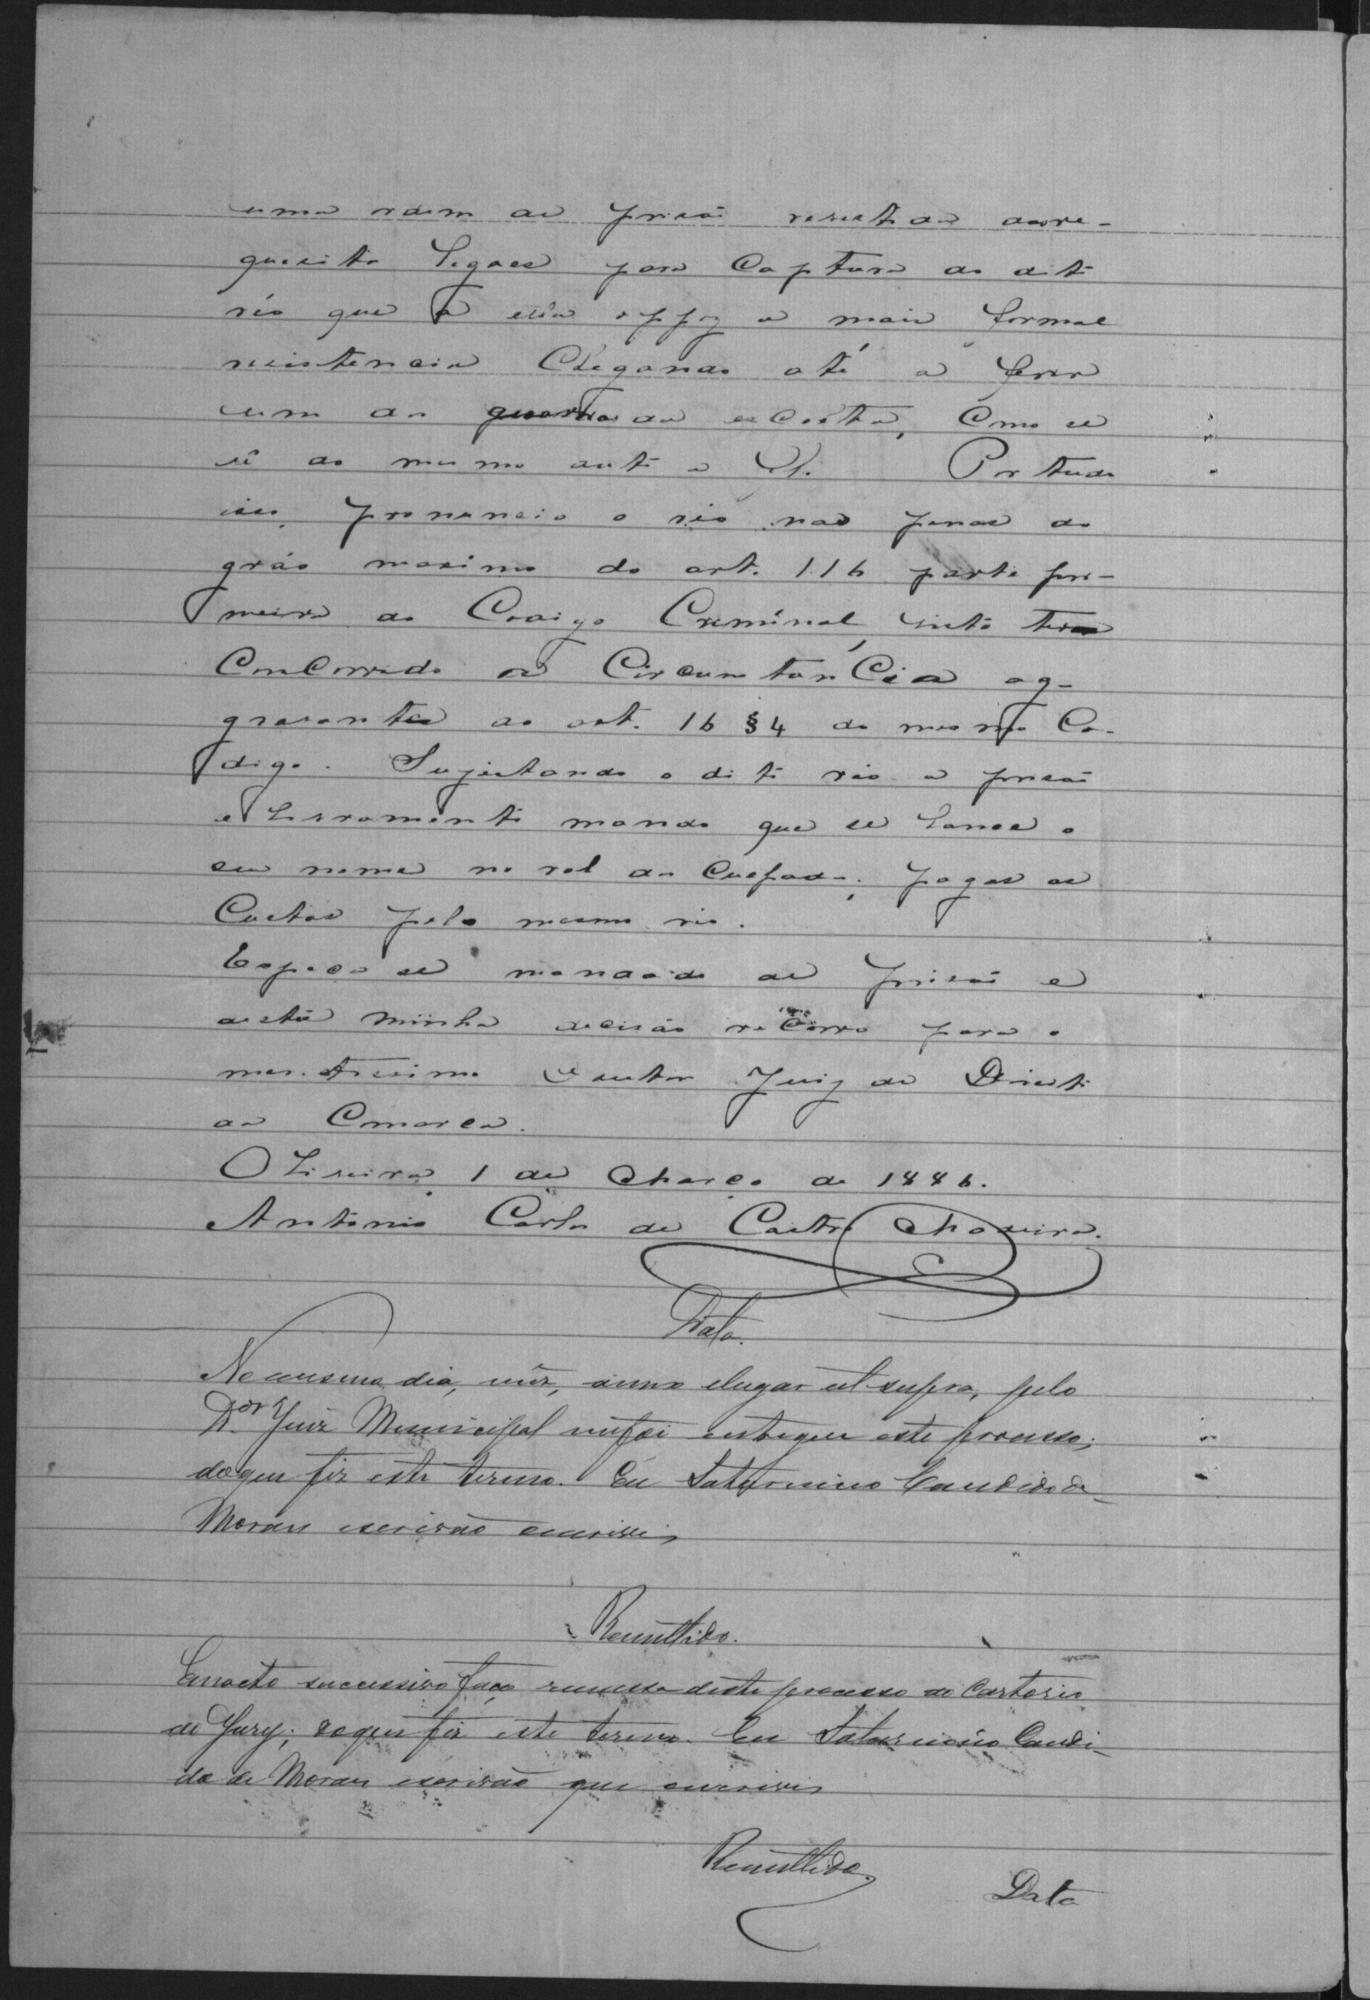 uma ordem de prisão revestida dos re-
quesito legaes para Captura do dito
réo que a ella oppoz a mais formal
resistencia Chegando até a ferir
um da guarda da escolta, Como se
vê do mesmo auto a fl. Por tudo
isso, pronuncio o réo nas penas do
gráo maximo do art. 116 parte pri-
meira do Codigo Criminal, visto ter
Concorrido a Circumstancia ag-
gravante do art. 16 § 4 do mesmo Co-
digo. Sujeitando o dito réo a prisão
e livramento mando que se lance o
seu nome no rol dos Culpados; pagas as
Custas pelo mesmo réo.
Expeça se mandado de prisão e
desta minha decisão recorro para o
meritissimo Doutor Juiz de Direito
da Comarca.
Oliveira, 1 de Março de 1886.
Antonio Carlos de Castro Madeira.
Data.
No mesmo dia, mez, anno e lugar ut supra, pelo
Dor. Juiz Municipal me foi entregue este processo;
do que fiz este termo. Eu Saturnino Candido de
Moraes escrivão escrevi
Remettido.
Em acto successivo faço remessa deste processo ao Cartorio
do Jury; do que fiz este termo. Eu Saturnino Candi-
do de Moraes escrivão que escrevi
Remettido
Data